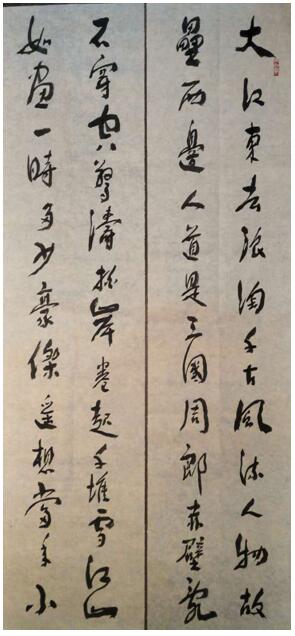 大江東去浪淘千古風流人物故
壘西邊人道是三國周郎赤壁亂
石穿空驚濤拍岸卷起千堆雪江山
如畫一時多少豪傑遥想當年小